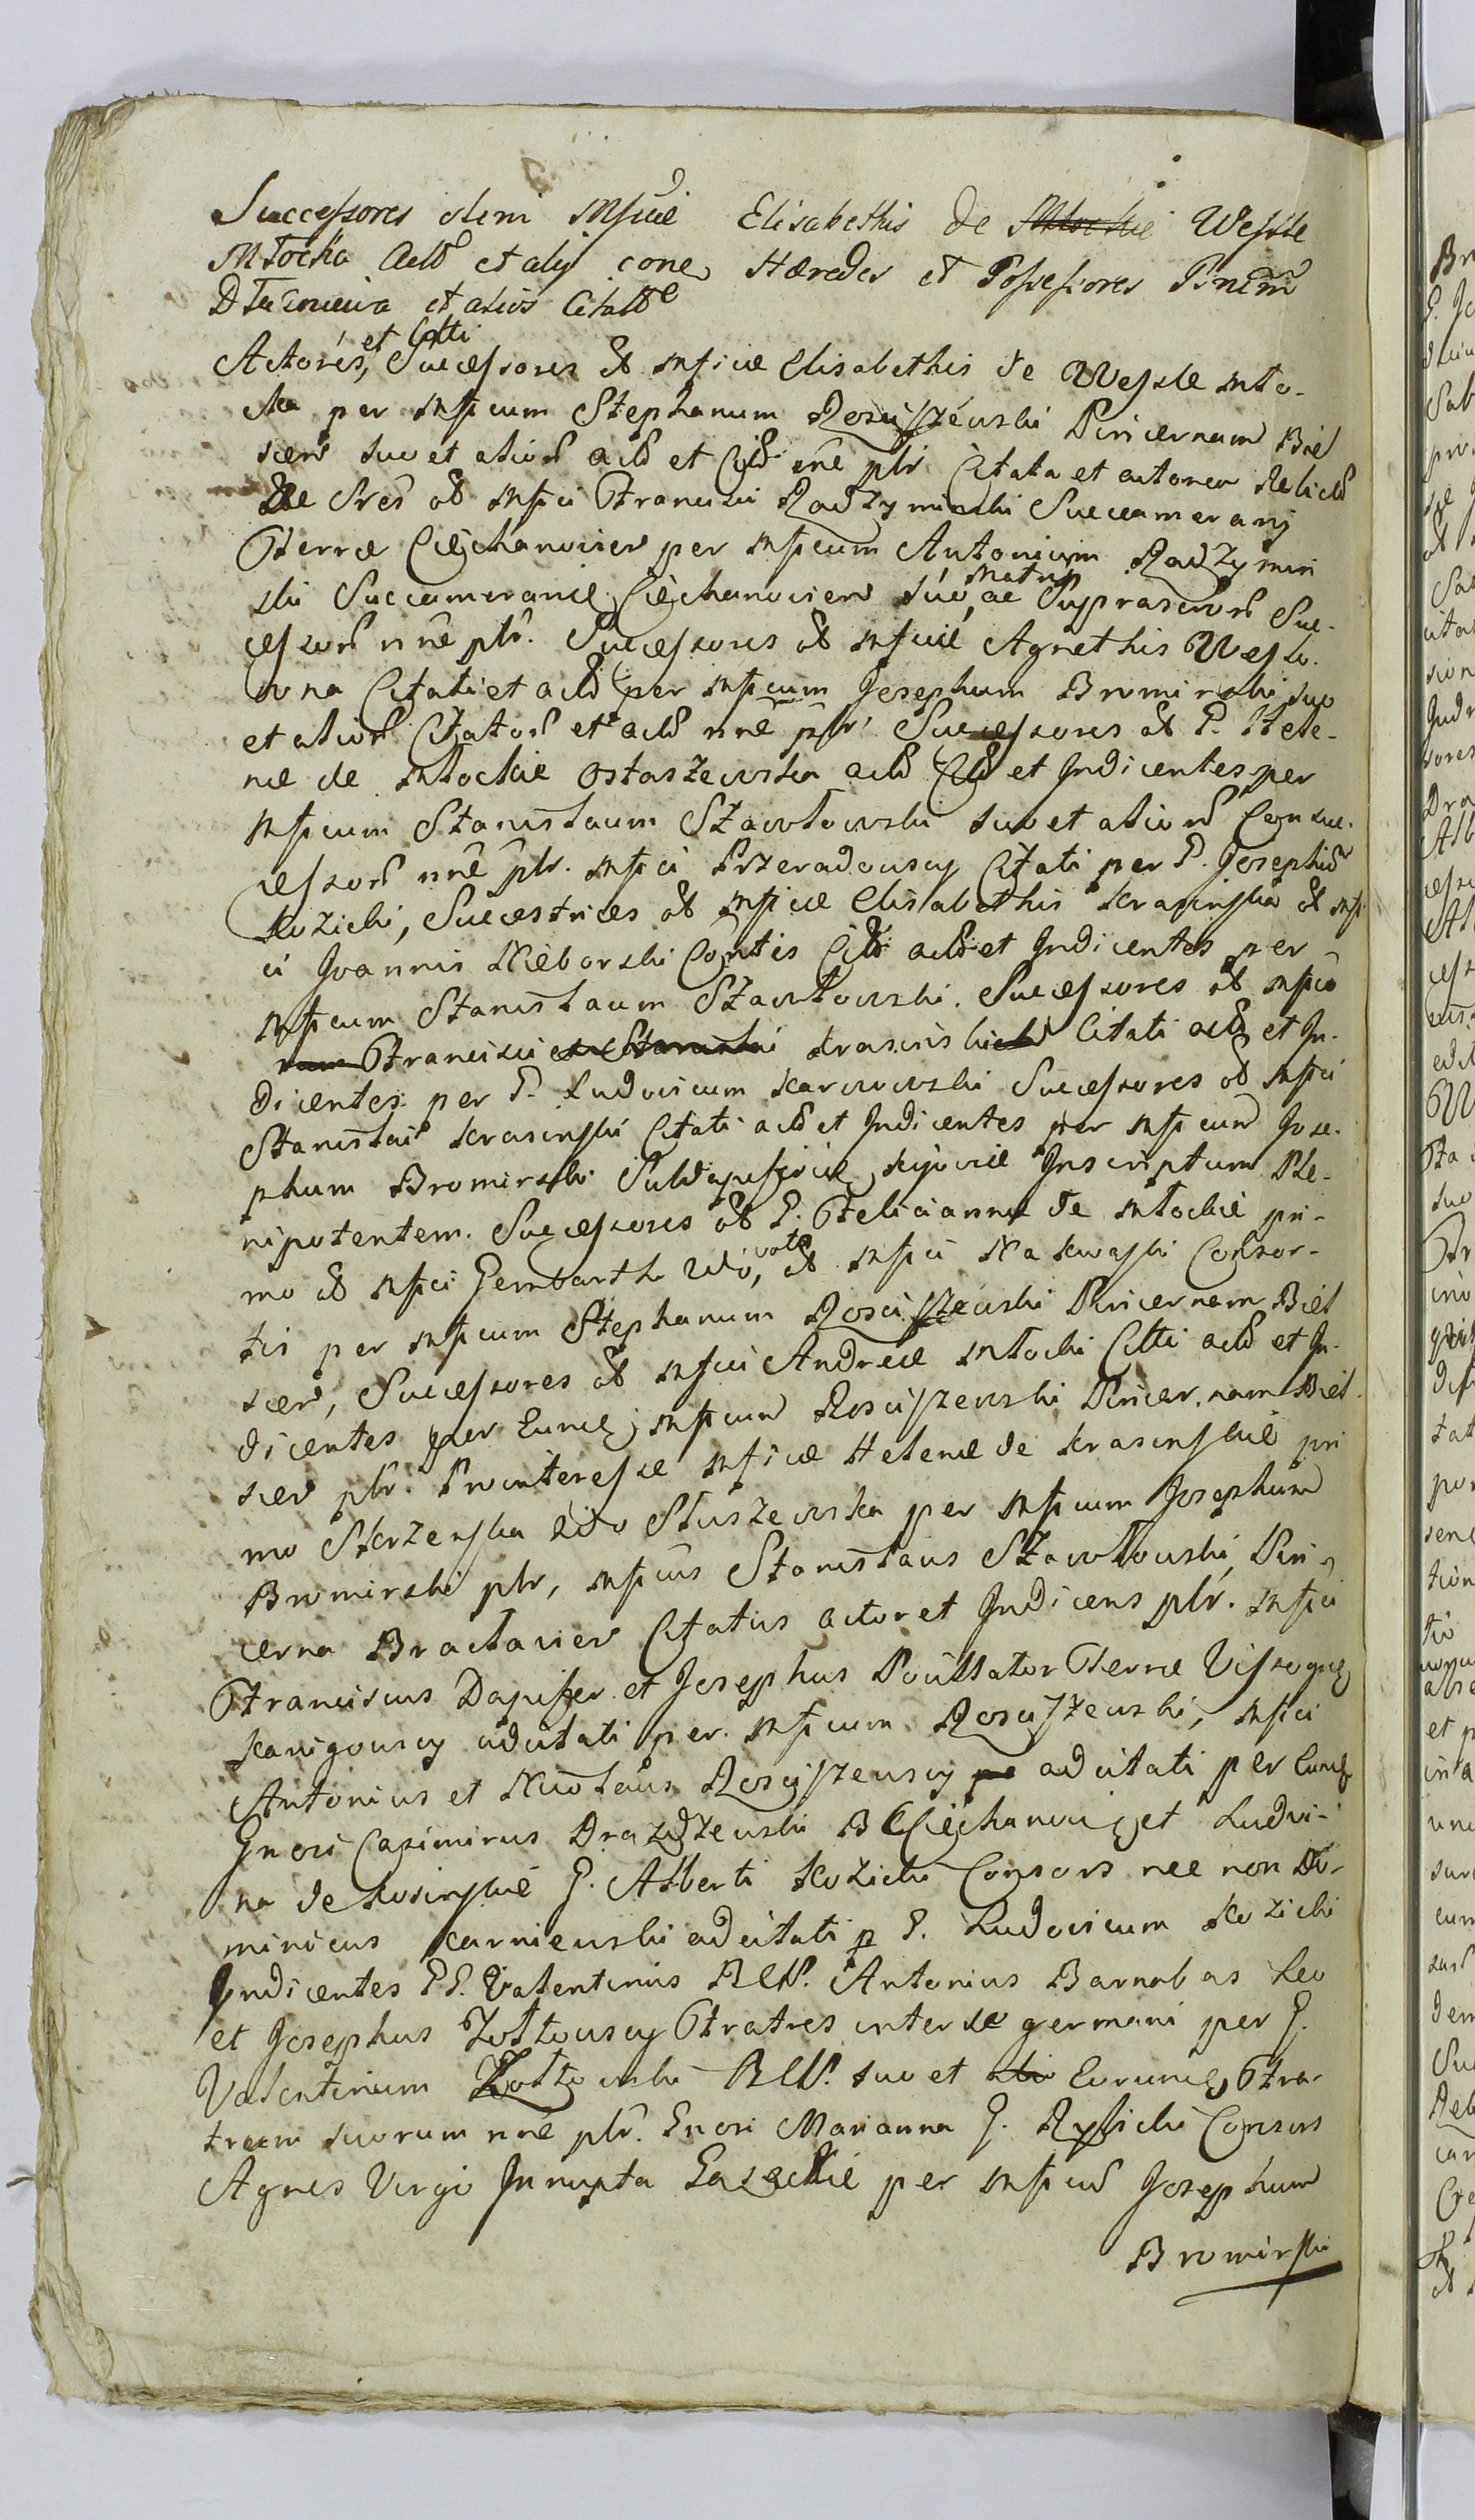 Successores olim Mficæ Elisabethis de Młockie Wessle
Młocka et alij cone Hæredes et Possessores
et alios
Actores, et Citti Successores ol Mficæ Elisabethis de Wessle Mło-
cka per Mficum Stephanum Rosciszewski Pincernam Biel
scen suo et alior act et Cit nne plr. Citata et actorea Relict
Sres ol Mfici Francisci Radzyminski Succamerarij
Terræ Ciechanovien per Mficum Antonium Radzymin
ski Succamerarie Ciechanovien suo, ac Matris suprascror Suc-
cessor nne plr. Successores ol Mficæ Agnethis Wesslo-
wna Citati et act per Mficum Josephum Bromirski suo
et alior Citator et act nne plr. Successores ol G. Hele-
næ de Młockie Ostaszewska act Cit et Indicentes per
Mficum Stanisłaum Szawłowski suo et alior Consuc-
cessor nne plr. Mfici Przeradowscy Citati per G. Josephum
Kozicki, Successtrices ol Mficæ Elisabethis Krasinska ol Mfi
ci Joannis Nieborski Contis Cit act et Indicentes per
Mficum Stanisłaum Szawłowski. Successores ol Mfico
rum Francisci et Krasinski Citati act et In-
dicentes per G. Ludovicum Karwowski Successores ol Mfici
Stanisłai Krasinski Citati act et Indicentes per Mficum Jose-
phum Bromirski Subdapiferie Kijoviæ Inscriptum Ple-
nipotentem. Successores ol G. Felicianna de Młockie pri-
mo ol Mfici Gembarth 2do, voto ol Mfici Nakwaski Consor-
tis per Mficum Stephanum Rosciszewski Pincernam Biel
scen, Successores ol Mfici Andreæ Młocki Citti act et In-
dicentes per Eunde Mficum Rosciszewski Pincernam Biel-
scen plr. Prointeresse Mficæ Helenæ de Krasinskie pri
mo Skrzenska 2do Sluszewska per Mficum Josephum
Bromirski plr, Mficus Stanisłaus Szawłowski Pin-
cerna Bractavien Citatus actor et Indicens plr. Mfici
Franciscus Dapifer et Josephus Pocillator Terræ Vissogne
Kanigowscy adcitati per Mficum Rosciszewski, Mfici
Antonius et Nicolaus Rosciszewscy pe adcitati per Eund
Gnosi Casimirus Drazdzewski B Ciechanovi et Ludvi-
na de Kosinskie G. Alberti Kozicki Consors nec non Do-
minicus Karniewski adcitati p G. Ludovicum Kozicki
Indicentes GG. Valentinus RCW. Antonius Barnabas Leo
et Josephus Zołtowscy Fratres inter se germani per G.
Valentinum Zołtowski RCW. suo et alio Eorunde Fra-
trum suorum nne plr. Gnosi Marianna G. Rysicki Consors
Agnes Virgo Innupta per Mficum Josephum
Bromirski